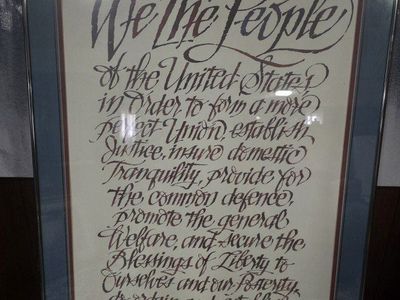 We The People
of the United States
in Order to form a more
perfect Union, establish
Justice, insure domestic
Tranquility, provide for
the common defence,
promote the general
Welfare, and secure the
Blessings of Liberty to
Ourselves and our Posterity,